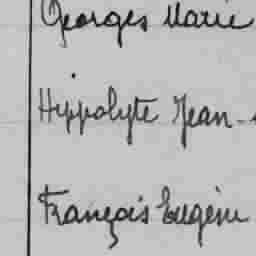 Georges Marie
Hippolyte Jean-
François Eugène